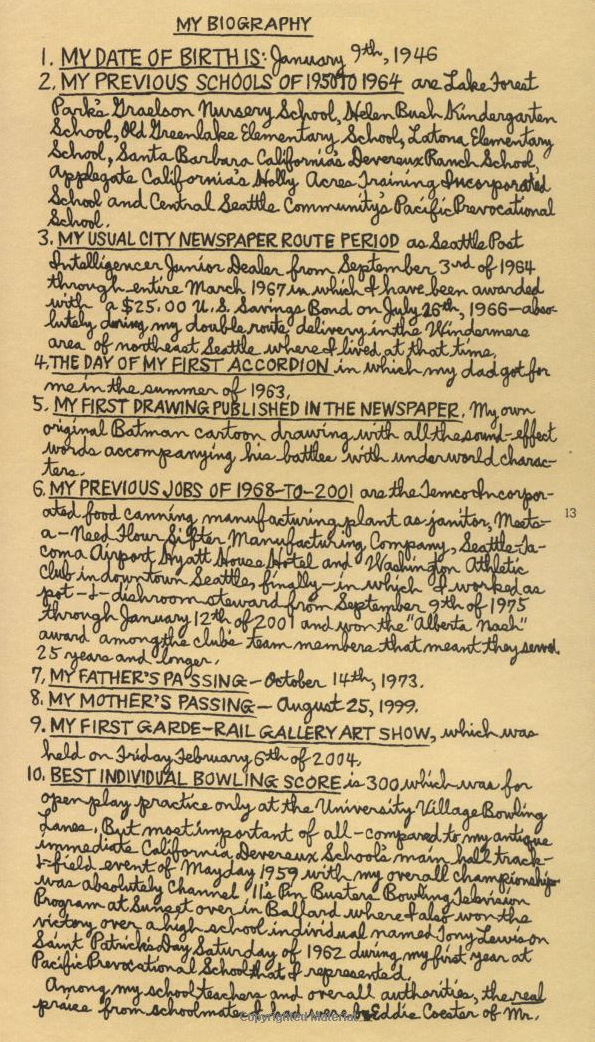 MY BIOGRAPHY
1. MY DATE OF BIRTH IS: January 9th, 1946
2. MY PREVIOUS SCHOOLS OF 1950 TO 1964 are Lake Forest
Park's Graelson Nursery School, Helen Bush Kindergarten
School, Old Greenlake Elementary, School, Latona Elementary
School, Santa Barbara California's Devereux Ranch School,
Applegate California's Holly Acres Training Incorporated
School and Central Seattle Community's Pacific Prevocational
School.
3. MY USUAL CITY NEWSPAPER ROUTE PERIOD as Seattle Post
Intelligencer Junior Dealer from September 3rd of 1964
through entire March 1967 in which I have been awarded
with a $25.00 U.S. Savings Bond on July 26th, 1966—abso-
lutely during my double route delivery in the Windermere
area of northeast Seattle where I lived at that time.
4. THE DAY OF MY FIRST ACCORDION in which my dad got for
me in the summer of 1963.
5. MY FIRST DRAWING PUBLISHED IN THE NEWSPAPER, My own
original Batman cartoon drawing with all the sound-effect
words accompanying his battles with underworld charac-
ters.
6. MY PREVIOUS JOBS OF 1968-TO-2001 are the Temco Incorpor-
ated food canning manufacturing plant as janitor, Meets-
a-Need Flour Sifter Manufacturing Company, Seattle-Ta-
coma Airport Hyatt House Hotel and Washington Athletic
Club in downtown Seattle, finally—in which I worked as
pot-&-dishroom steward from September 9th of 1975
through January 12th of 2001 and won the "Alberta Nash"
award among the club's team members that meant they served
25 years and longer.
7. MY FATHER'S PASSING—October 14th, 1973.
8. MY MOTHER'S PASSING—August 25, 1999.
9. MY FIRST GARDE-RAIL GALLERY ART SHOW, which was
held on Friday February 6th of 2004.
10. BEST INDIVIDUAL BOWLING SCORE is 300 which was for
open play practice only at the University Village Bowling
Lanes. But most important of all—compared to my antique
immediate California Devereux School's main half track-
&-field event of Mayday 1959 with my overall championship
was absolutely Channel 11's Pin Busters Bowling Television
Program at Sunset over in Ballard where I also won the
victory over a high school individual named Tony Lewis on
Saint Patrick's Day Saturday of 1962 during my first year at
Pacific Prevocational School that I represented.
Among my school teachers and overall authorities, the real
praise from schoolmates I had were by Eddie Coester of Mr.
13
Copyrighted Material